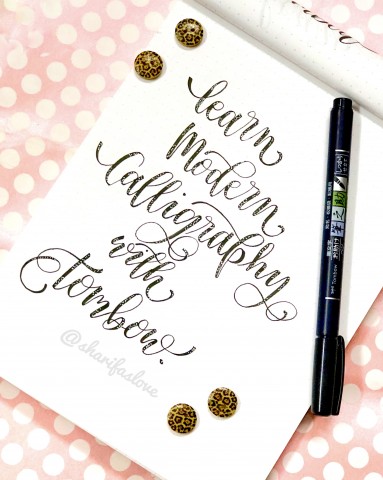 learn
Modern
Calligraphy
with
Tombow.
@sharifaslove